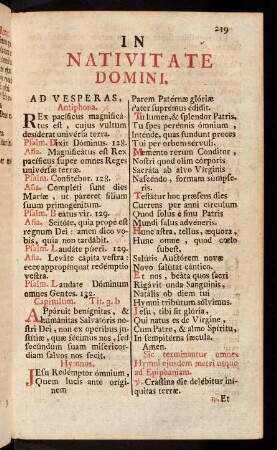 219
IN
NATIVITATE
DOMINI.
AD VESPERAS,
Antiphona.
REx pacificus magnificá-
tus est, cujus vultum
desíderat universa terra.
Psalm. Dixit Dóminus. 128.
Aña. Magnificátus est Rex
pacíficus super omnes Reges
univérsæ terræ.
Psalm. Confitébor. 128.
Aña. Compléti sunt dies
Maríæ, ut páreret fílium
suum primogénitum.
Psalm. Beátus vir. 129.
Aña. Scitóte, quia prope est
regnum Dei: amen dico vo-
bis, quia non tardábit.
Psalm. Laudáte púeri. 129.
Aña. Leváte cápita vestra:
ecce appropinquat redémptio
vestra.
Psalm. Laudate Dóminum
omnes Gentes. 132.
Capitulum. Tit. 3. b
APparuit benignitas, &
humánitas Salvatóris no-
stri Dei, non ex opéribus ju-
stitiæ, quæ fécimus nos, sed
secúndum suam misericor-
diam salvos nos fecit.
Hymnus.
JEsu Redémptor ómnium,
Quem lucis ante origi-
nem
Parem Patérnæ glóriæ
Pater suprémus édidit.
Tu lumen, & splendor Patris,
Tu spes perénnis ómnium,
Inténde, quas fundunt preces
Tui per orbem sérvuli.
Meménto rerum Cónditor,
Nostri quod olim córporis
Sacráta ab alvo Vírginis
Nascéndo, formam súmpse-
ris.
Testátur hoc præsens dies
Currens per anni círculum
Quod solus è sinu Patris
Mundi salus advéneris.
Hunc astra, tellus, æquora,
Hunc omne, quod cœlo
subest,
Salútis Auctórem novæ
Novo salútat cántico.
Et nos, beáta quos sacri
Rigávit unda Sánguinis,
Natális ob diem tui
Hymni tribútum sólvimus.
Jesu, tibi sit glória,
Qui natus es de Vírgine,
Cum Patre, & almo Spíritu,
In sempitérna sæcula.
Amen.
Sic terminantur omnes
Hymni ejusdem metri usque
ad Epiphaniam.
℣. Crástina die delébitur iní-
quitas terræ.
℟. Et